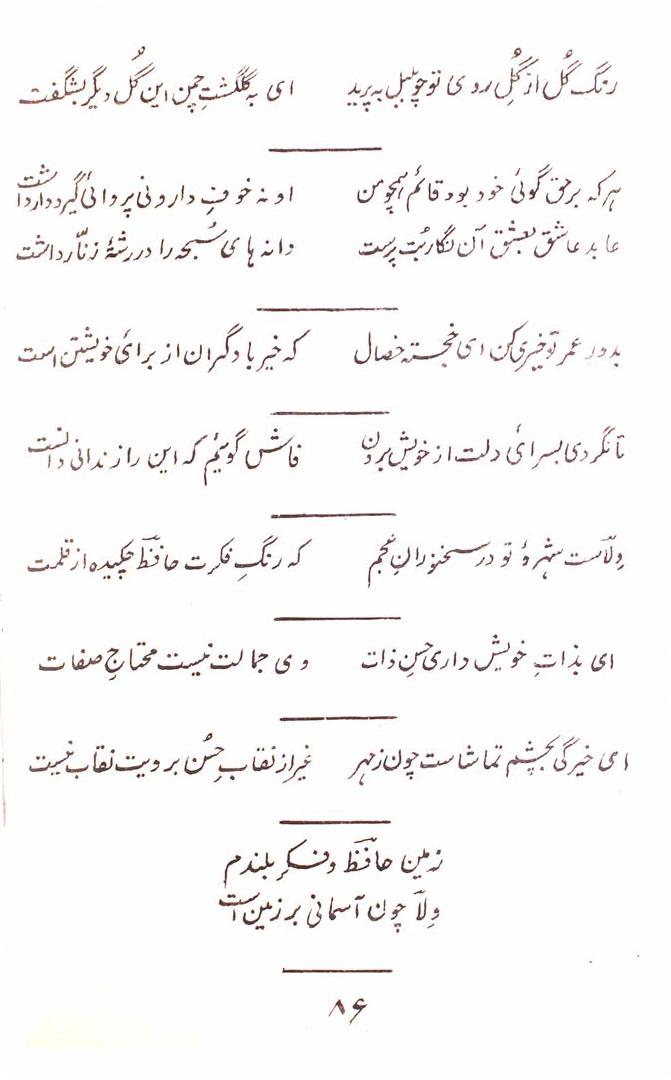 رنگ گُل از گُلِ روی تو چو بلبل به پرید ای به گلگشتِ چمن این گُل دیگر بشگفت
هر که بر حق گوئیِ خود بود قائم همچو من او نه خوفِ دار و نی پروائی گیر و دار داشت
عابد عاشق بعشق آن نگار بُت پرست دانه های سُبحه را در رشتۀ زنّار داشت
بدورِ عمر تو خیری کن ای خجسته خصال که خیر با دگران از برائ خویشتن است
تا نگردی بسرائ دلت از خویش برون فاش گوئیم که این راز ندانی دانست
وِلاّست شهرۀ تو در سخنورانِ عجم که رنگِ فکرت حافظؔ چکیده از قلمت
ای بذاتِ خویش داری حسنِ ذات وی جمالت نیست محتاجِ صفات
ای خیرگی بچشم تماشاست چون ز مهر غیر از نقابِ حُسن برویت نقاب نیست
زمین حافظؔ و فکرِ بلندم
وِلاّ چون آسمانی بر زمین است
۸۶